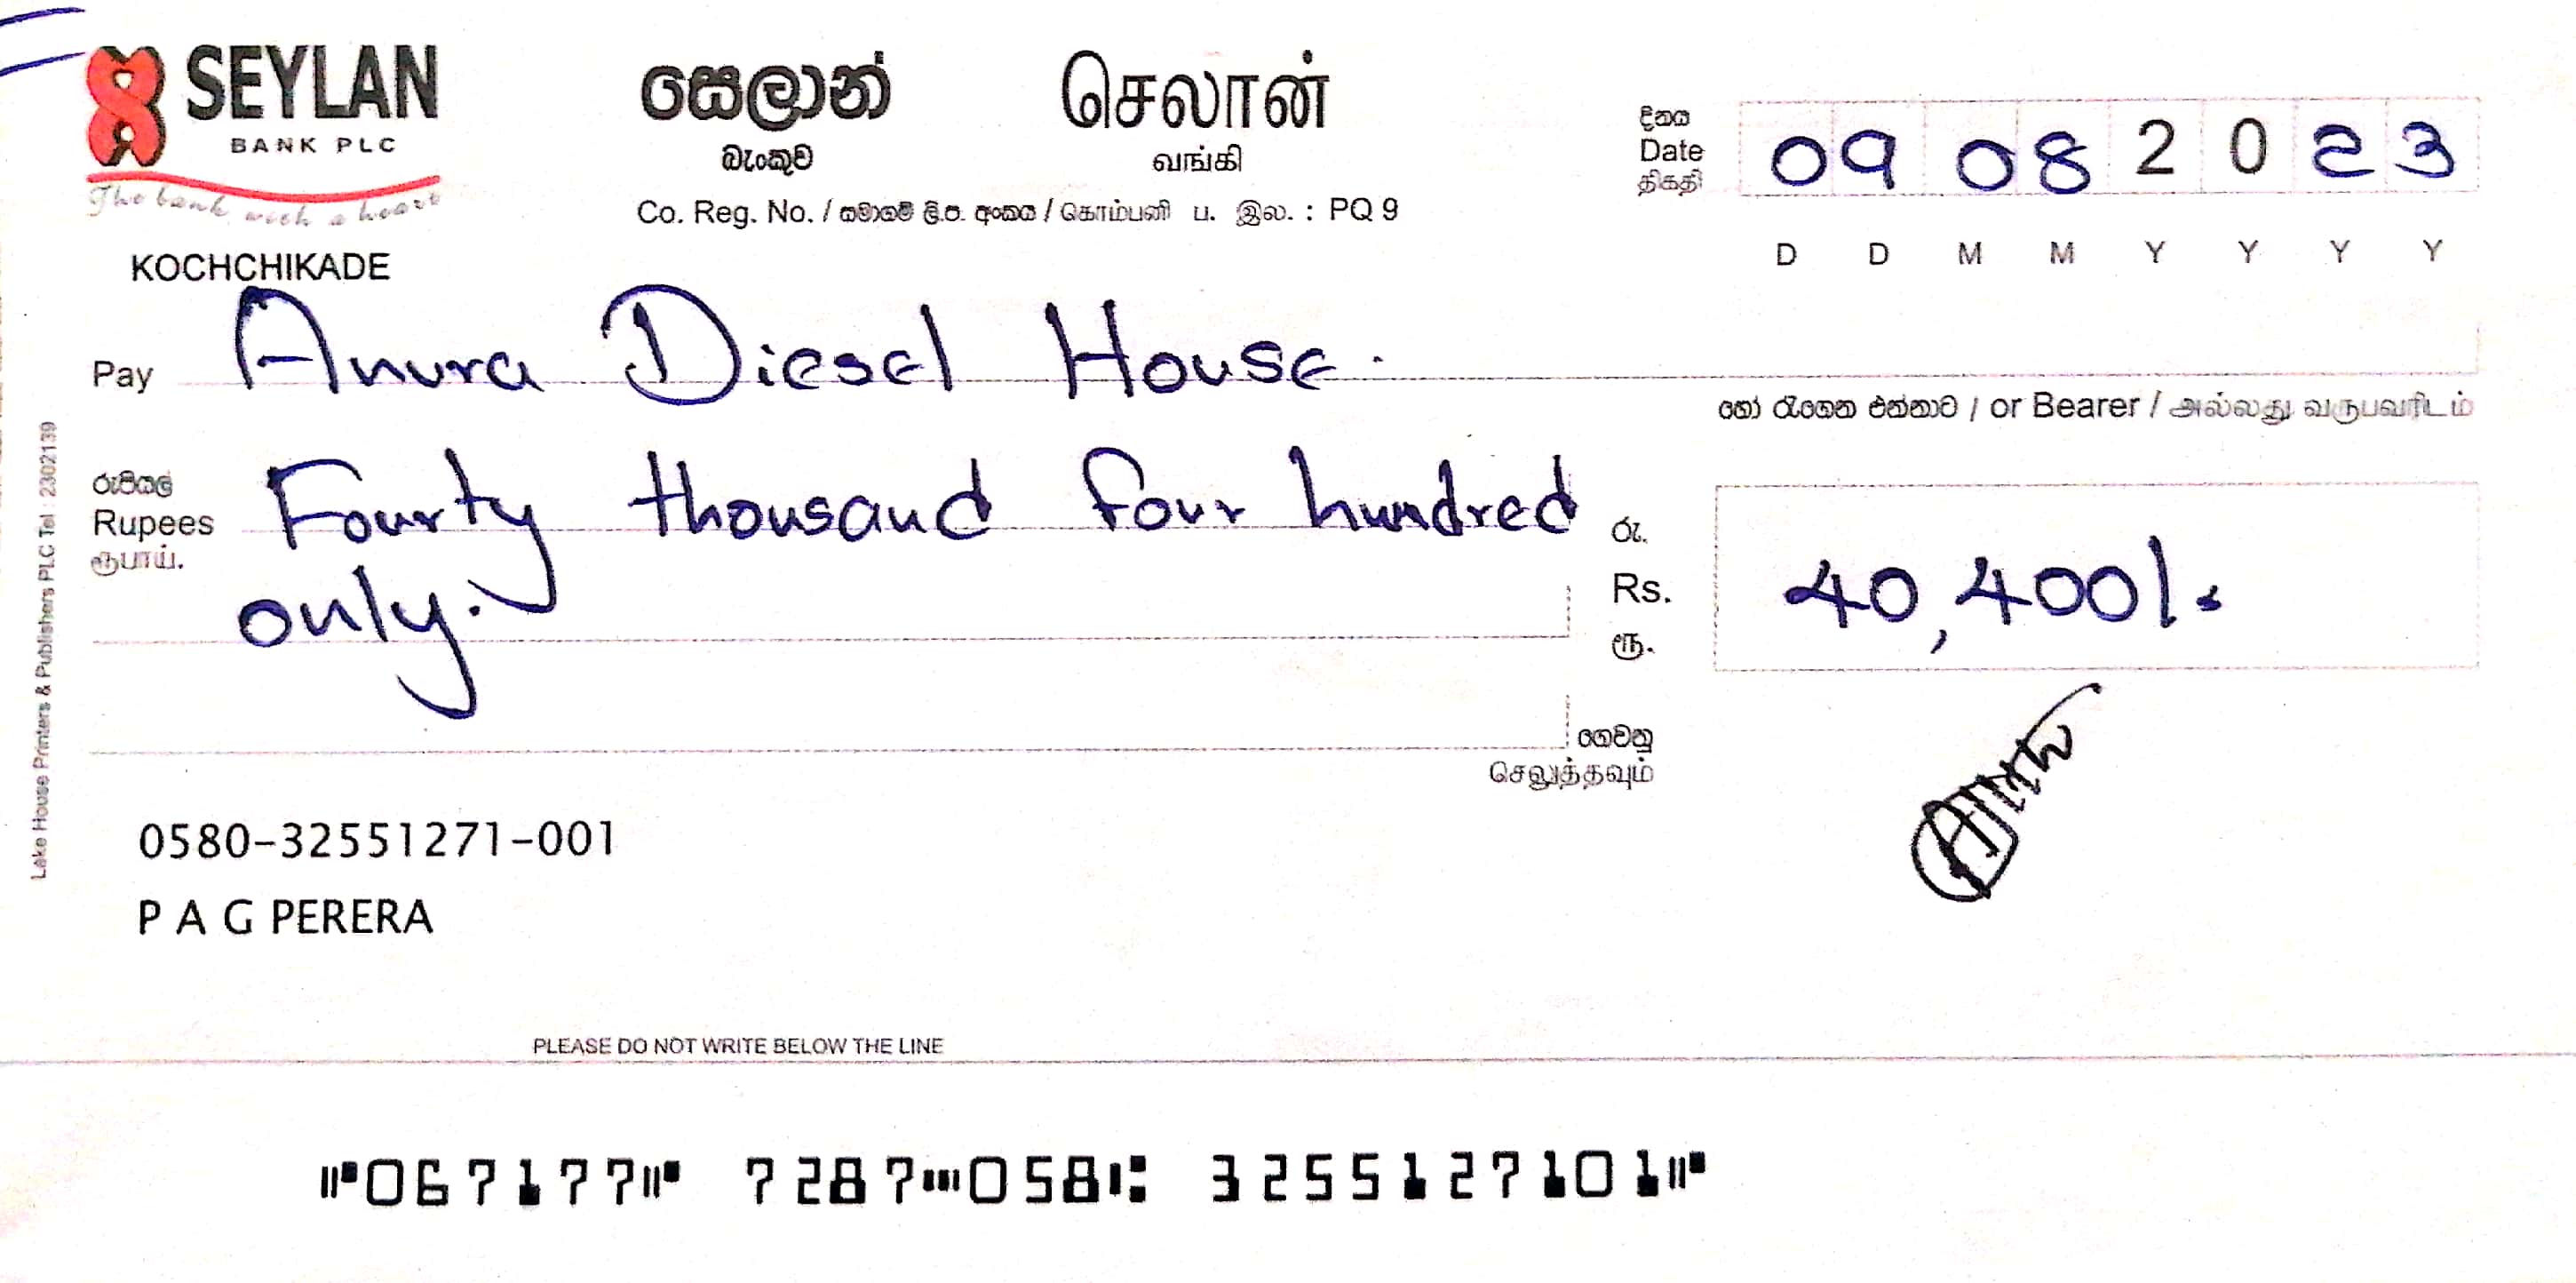 SEYLAN
BANK PLC
The bank with a heart
KOCHCHIKADE
සෙලාන්
බැංකුව
செலான்
வங்கி
Co. Reg. No. / සමාගම් ලි.ප. අංකය / கொம்பனி ப. இல. : PQ 9
දිනය
Date
திகதி
09 08 2023
D D M M Y Y Y Y
Pay Anura Diesel House.
හෝ රැගෙන එන්නාට / or Bearer / அல்லது வருபவரிடம்
රුපියල්
Rupees
ரூபாய்.
Fourty thousand four hundred
only.
රු.
Rs.
ரூ.
40,400/-
ගෙවනු
செலுத்தவும்
0580-32551271-001
P A G PERERA
Lake House Printers & Publishers PLC Tel : 2302139
PLEASE DO NOT WRITE BELOW THE LINE
⑈067177⑈ 7287⑉058⑆ 3255127101⑈